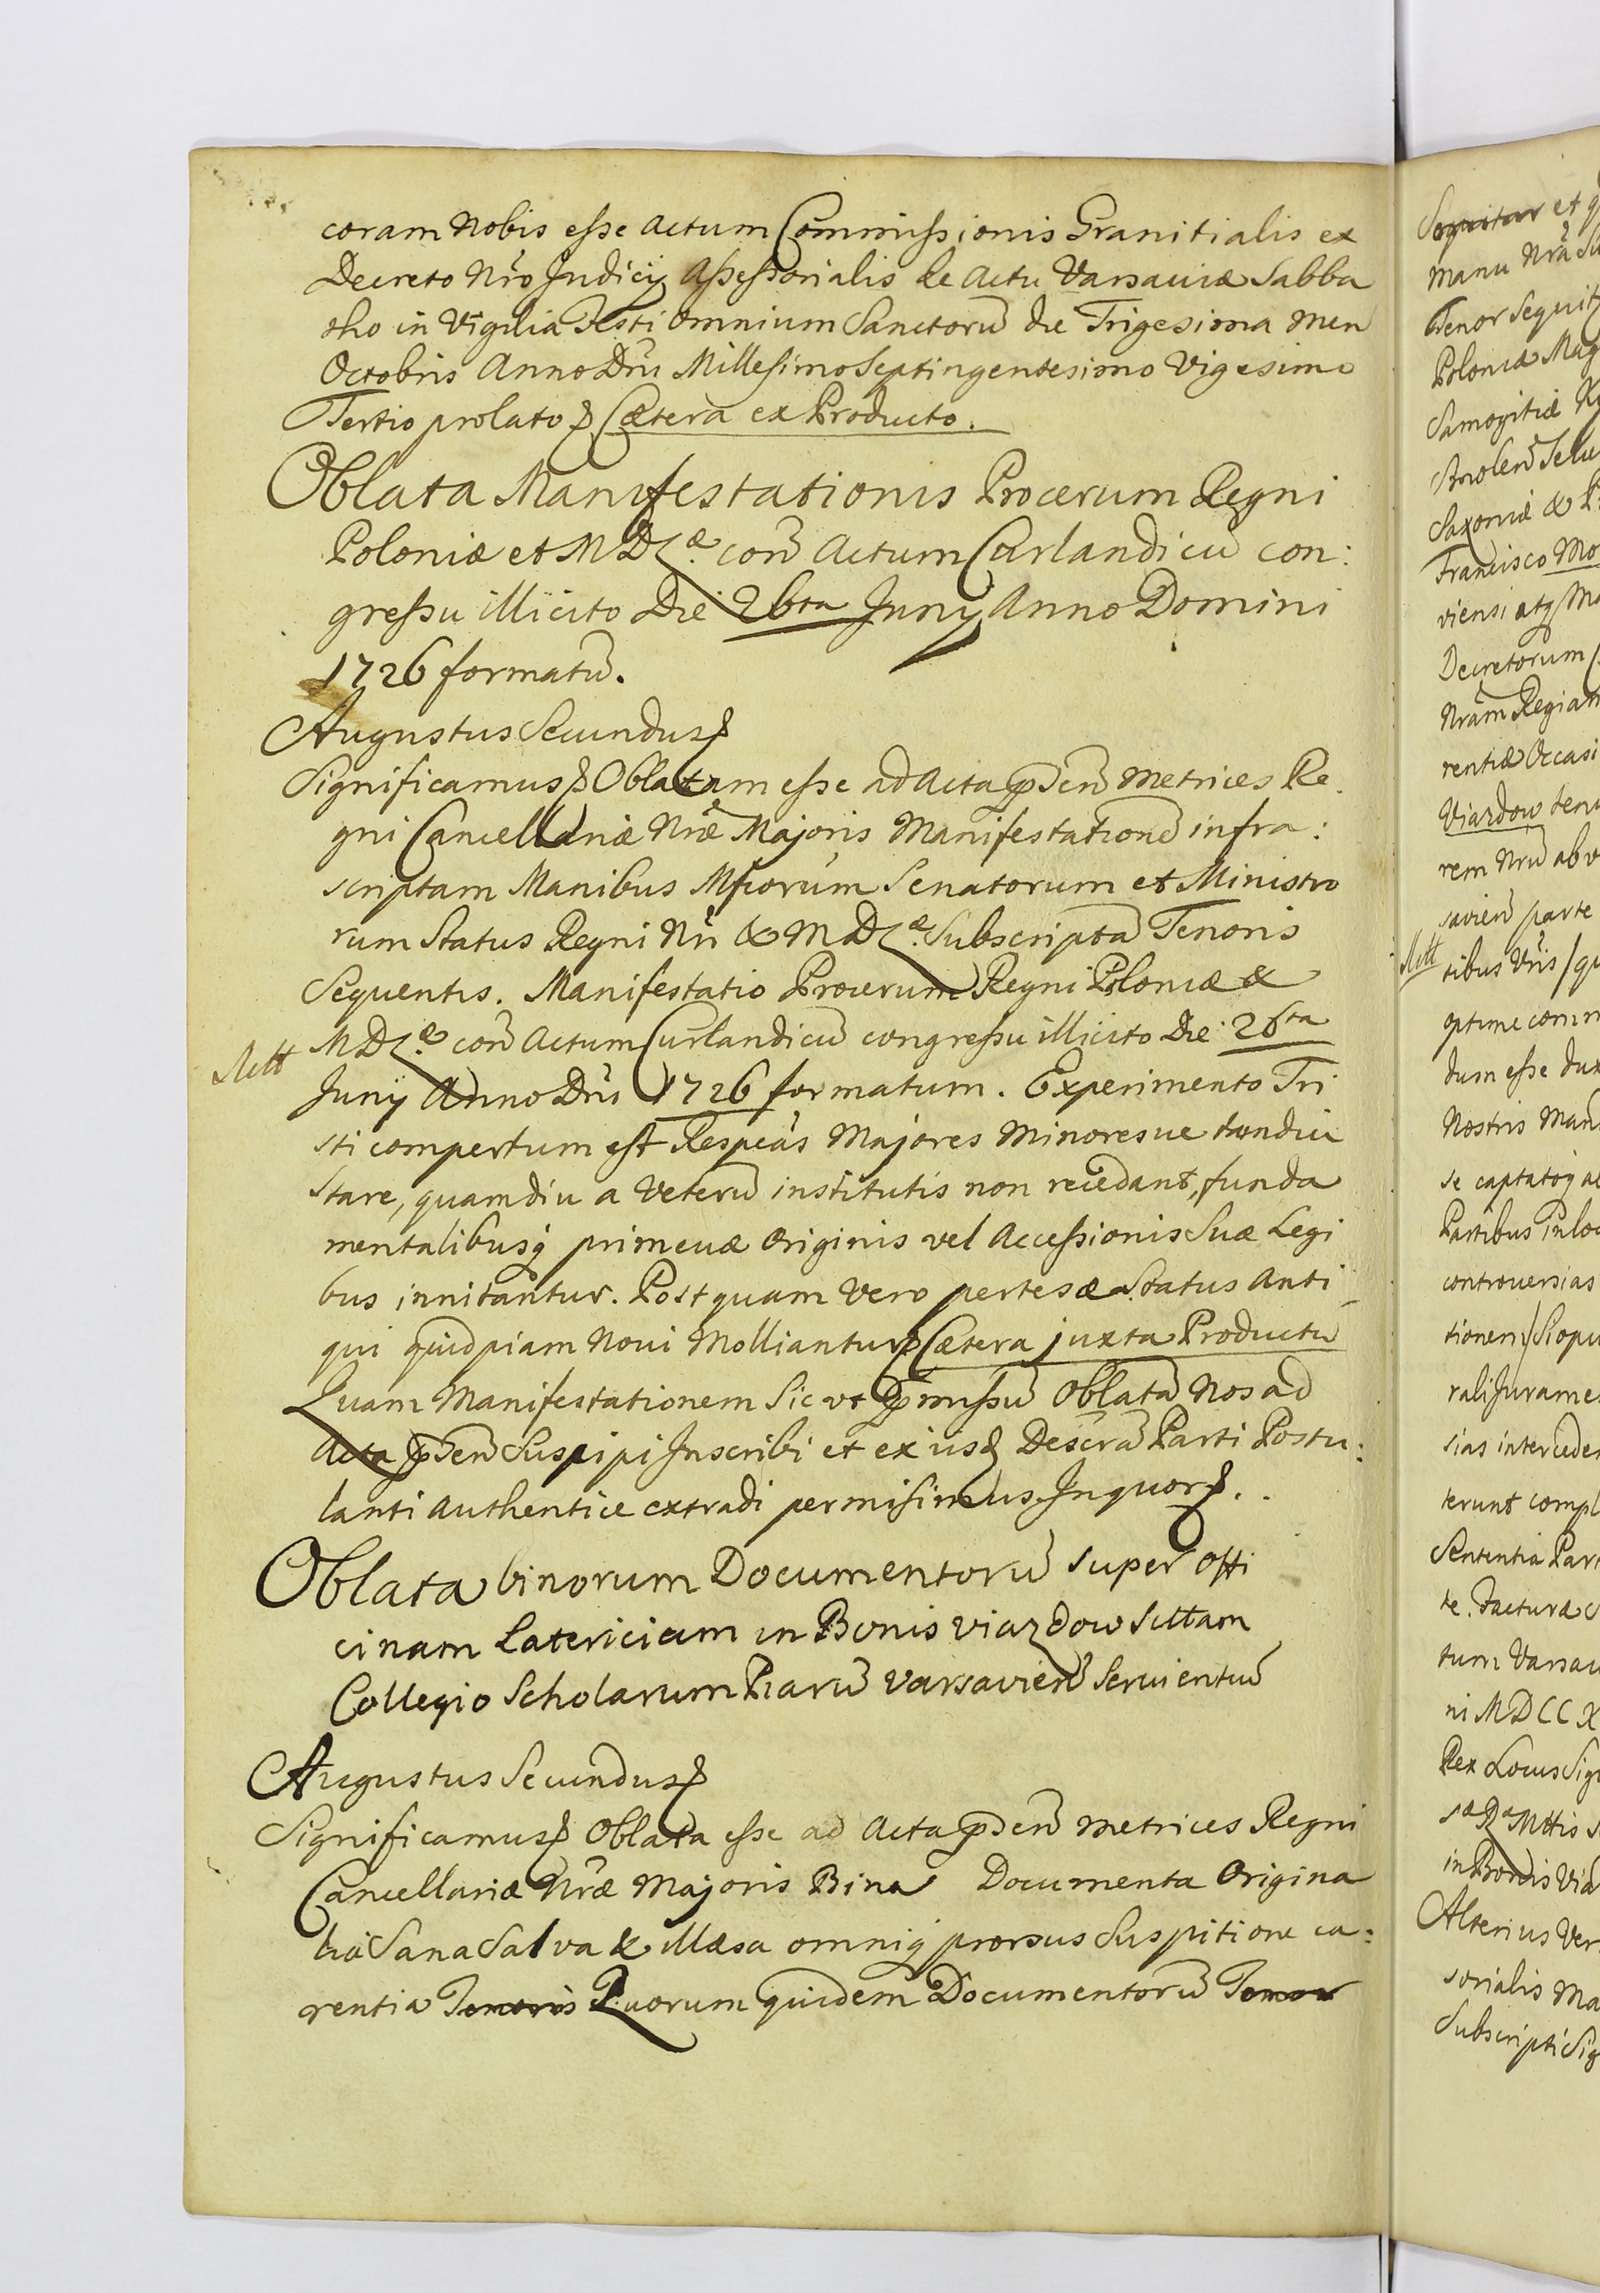 coram Nobis esse Actum Commissionis Granitialis ex
Decreto Nro Judicij Assessorialis de Actu Varsaviæ Sabba
tho in Vigilia Festi Omnium Sanctorũ die Trigesima Men
Octobris Anno Dñi Millesimo Septingentesimo Vigesimo
Tertio prolato Cætera ex Producto.
Oblata Manifestationis Procerum Regni
Poloniæ et M D L æ. con̄ Actum Curlandicũ con:
gressu illicito Die 26ta Junij Anno Domini
1726 formatũ.
Augustus Secundus
Significamus Oblatam esse ad Acta p̃sen̄ Metrices Re.
gni Cancellariæ Nr̃æ Majoris Manifestationẽ infra:
scriptam Manibus Mficorum Senatorum et Ministro
rum Status Regni Nri & M D L æ. Subscriptã Tenoris
Sequentis. Manifestatio Procerum Regni Poloniæ &
M D L æ. con̄ Actum Curlandicũ congressu illicito Die 26ta
Junij Anno Dñi 1726 formatum. Experimento Tri
sti compertum est Respcas Majores Minoresve tamdiu
stare, quamdiu a Veterũ institutis non recedant, funda
mentalibusq primevæ Originis vel Accessionis Suæ Legi
bus innitantur. Postquam Vero pertesæ Status Anti
qui quidpiam Novi Molliantur Cætera juxta Productũ
Quam Manifestationem Sic ut p̃missũ Oblatã Nos ad
Acta p̃sen̄ Suspipi Inscribi et ex iisd Descrã Parti Postu:
lanti Authentice extradi permisimus. Inquor.
Oblata binorum Documentorũ super Offi
cinam Latericiam in Bonis Viazdow Sittam
Collegio Scholarum Piarũ Varsavien̄ Servientiũ
Augustus Secundus
Significamus Oblata esse ad Acta p̃sen̄ Metrices Regni
Cancellariæ Nr̃æ Majoris Bina Documenta Origina
lia Sana Salva & illæsa omniq prorsus Suspitione ca:
rentia Tenoris Quorum quidem Documentorũ Tenor
Sequitur et
manu Nrã
Tenor Sequit
Poloniæ Mag
Samogitiæ
Smolen̄
Saxoniæ &
Francisco Mo
viensi atq
Decretorum
Nrãm Regiam
rentiæ Occasi
Viazdow
rem Nrũ ab
savien̄ parte
tibus Vris
optime comm
dum esse dux
Nostris Man
se captatoq
Partibus in loc
controversias
tionem
rali Jurame
sias interceden
terunt compl
Sententia Par
te. Facturæ
tum Varsav
ni MDCCX
Rex Locus Sig
in Bonis Via
Alterius Ver
sorialis Ma
Subscripti Sig